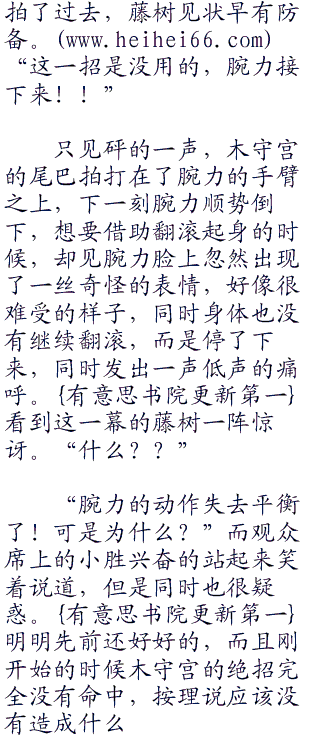 拍了过去，藤树见状早有防
备。(www.heihei66.com)
“这一招是没用的，腕力接
下来！！”
只见砰的一声，木守宫
的尾巴拍打在了腕力的手臂
之上，下一刻腕力顺势倒
下，想要借助翻滚起身的时
候，却见腕力脸上忽然出现
了一丝奇怪的表情，好像很
难受的样子，同时身体也没
有继续翻滚，而是停了下
来，同时发出一声低声的痛
呼。{有意思书院更新第一}
看到这一幕的藤树一阵惊
讶。“什么？？”
“腕力的动作失去平衡
了！可是为什么？”而观众
席上的小胜兴奋的站起来笑
着说道，但是同时也很疑
惑。{有意思书院更新第一}
明明先前还好好的，而且刚
开始的时候木守宫的绝招完
全没有命中，按理说应该没
有造成什么